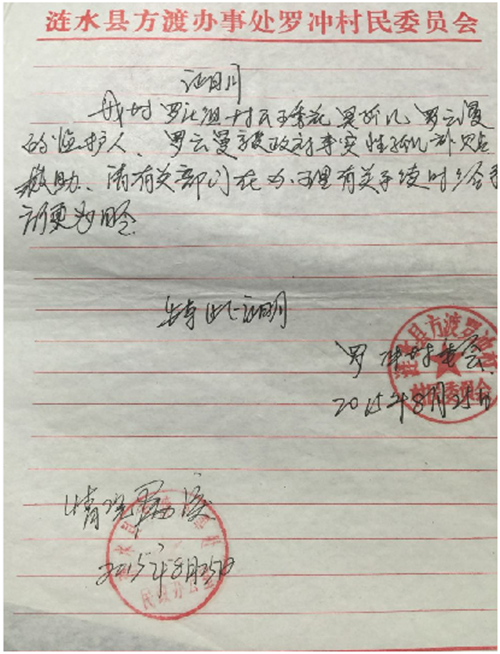 涟水县方渡办事处罗冲村民委员会
证明
我村罗冲组村民王秀花 是孤儿 罗云漫
的监护人、罗云漫被政府事实性孤儿补贴
救助、请有关部门在办理有关手续时给予
方更为盼
特此证明
罗冲村委会
2015年8月25日
情况属实
2015年8月25日